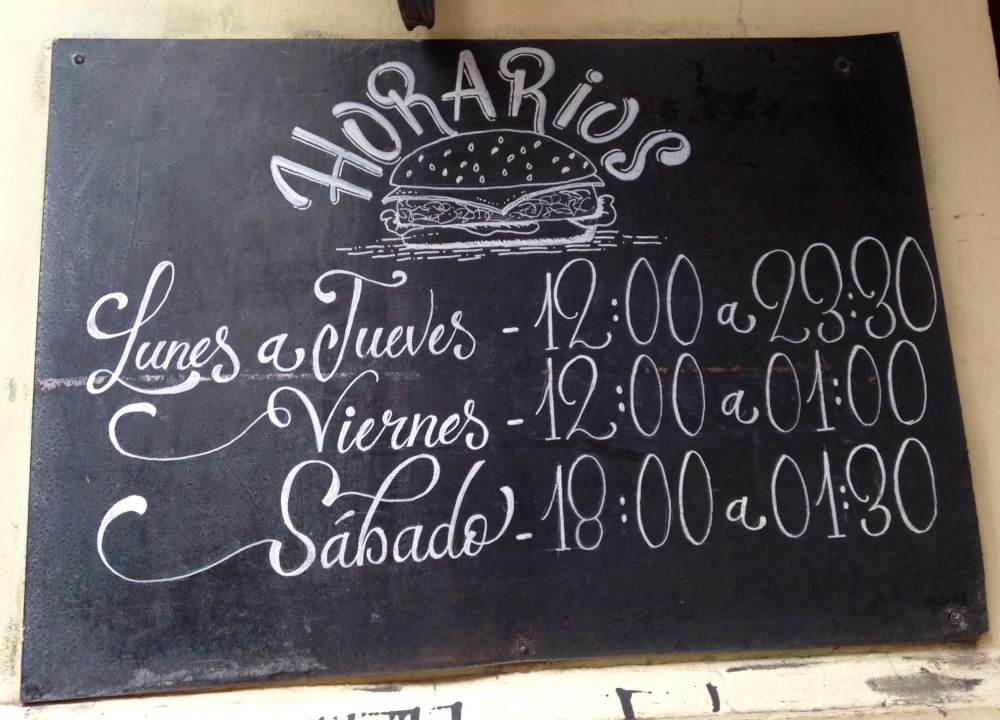 HORARiOS
Lunes a Jueves - 12:00 a 23:30
Viernes - 12:00 a 01:00
Sábado - 18:00 a 01:30